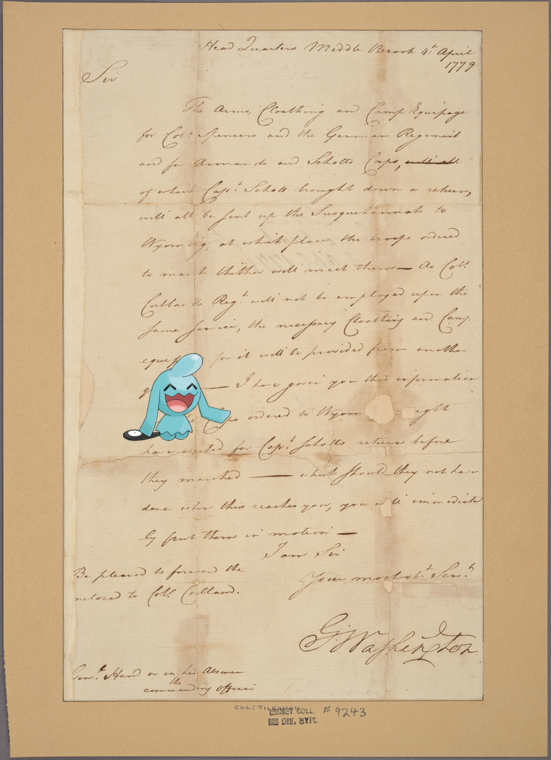 Head Quarters Middle Brook 4th April
1779
Sir
The Arms, Cloathing and Camp Equipage
for Colo. Spencers and the German Regiment
and for Armands and Schotts Corps, 
of which Capt. Schott brought down a return,
will all be sent up the Susquehannah to
Wyoming, at which place, the troops ordered
to march thither will meet them — As Colo.
Cortlandts Regt. will not be employed upon the
same service, the necessary Cloathing and Camp
equip for it will be provided from another
— I have given you this information
ordered to Wyom ight
have waited for Capt. Schotts return before
they marched — which should they not have
done when this reaches you, you will immediate
ly put them in motion —
I am Sir
Your most obt. Servt.
Be pleased to forward the
inclosed to Colo. Cortland.
Go: Washington
Genl. Hand or in his Absence
the
commanding officer
EMMET COLL.
MS DIV. NYPL
# 9243